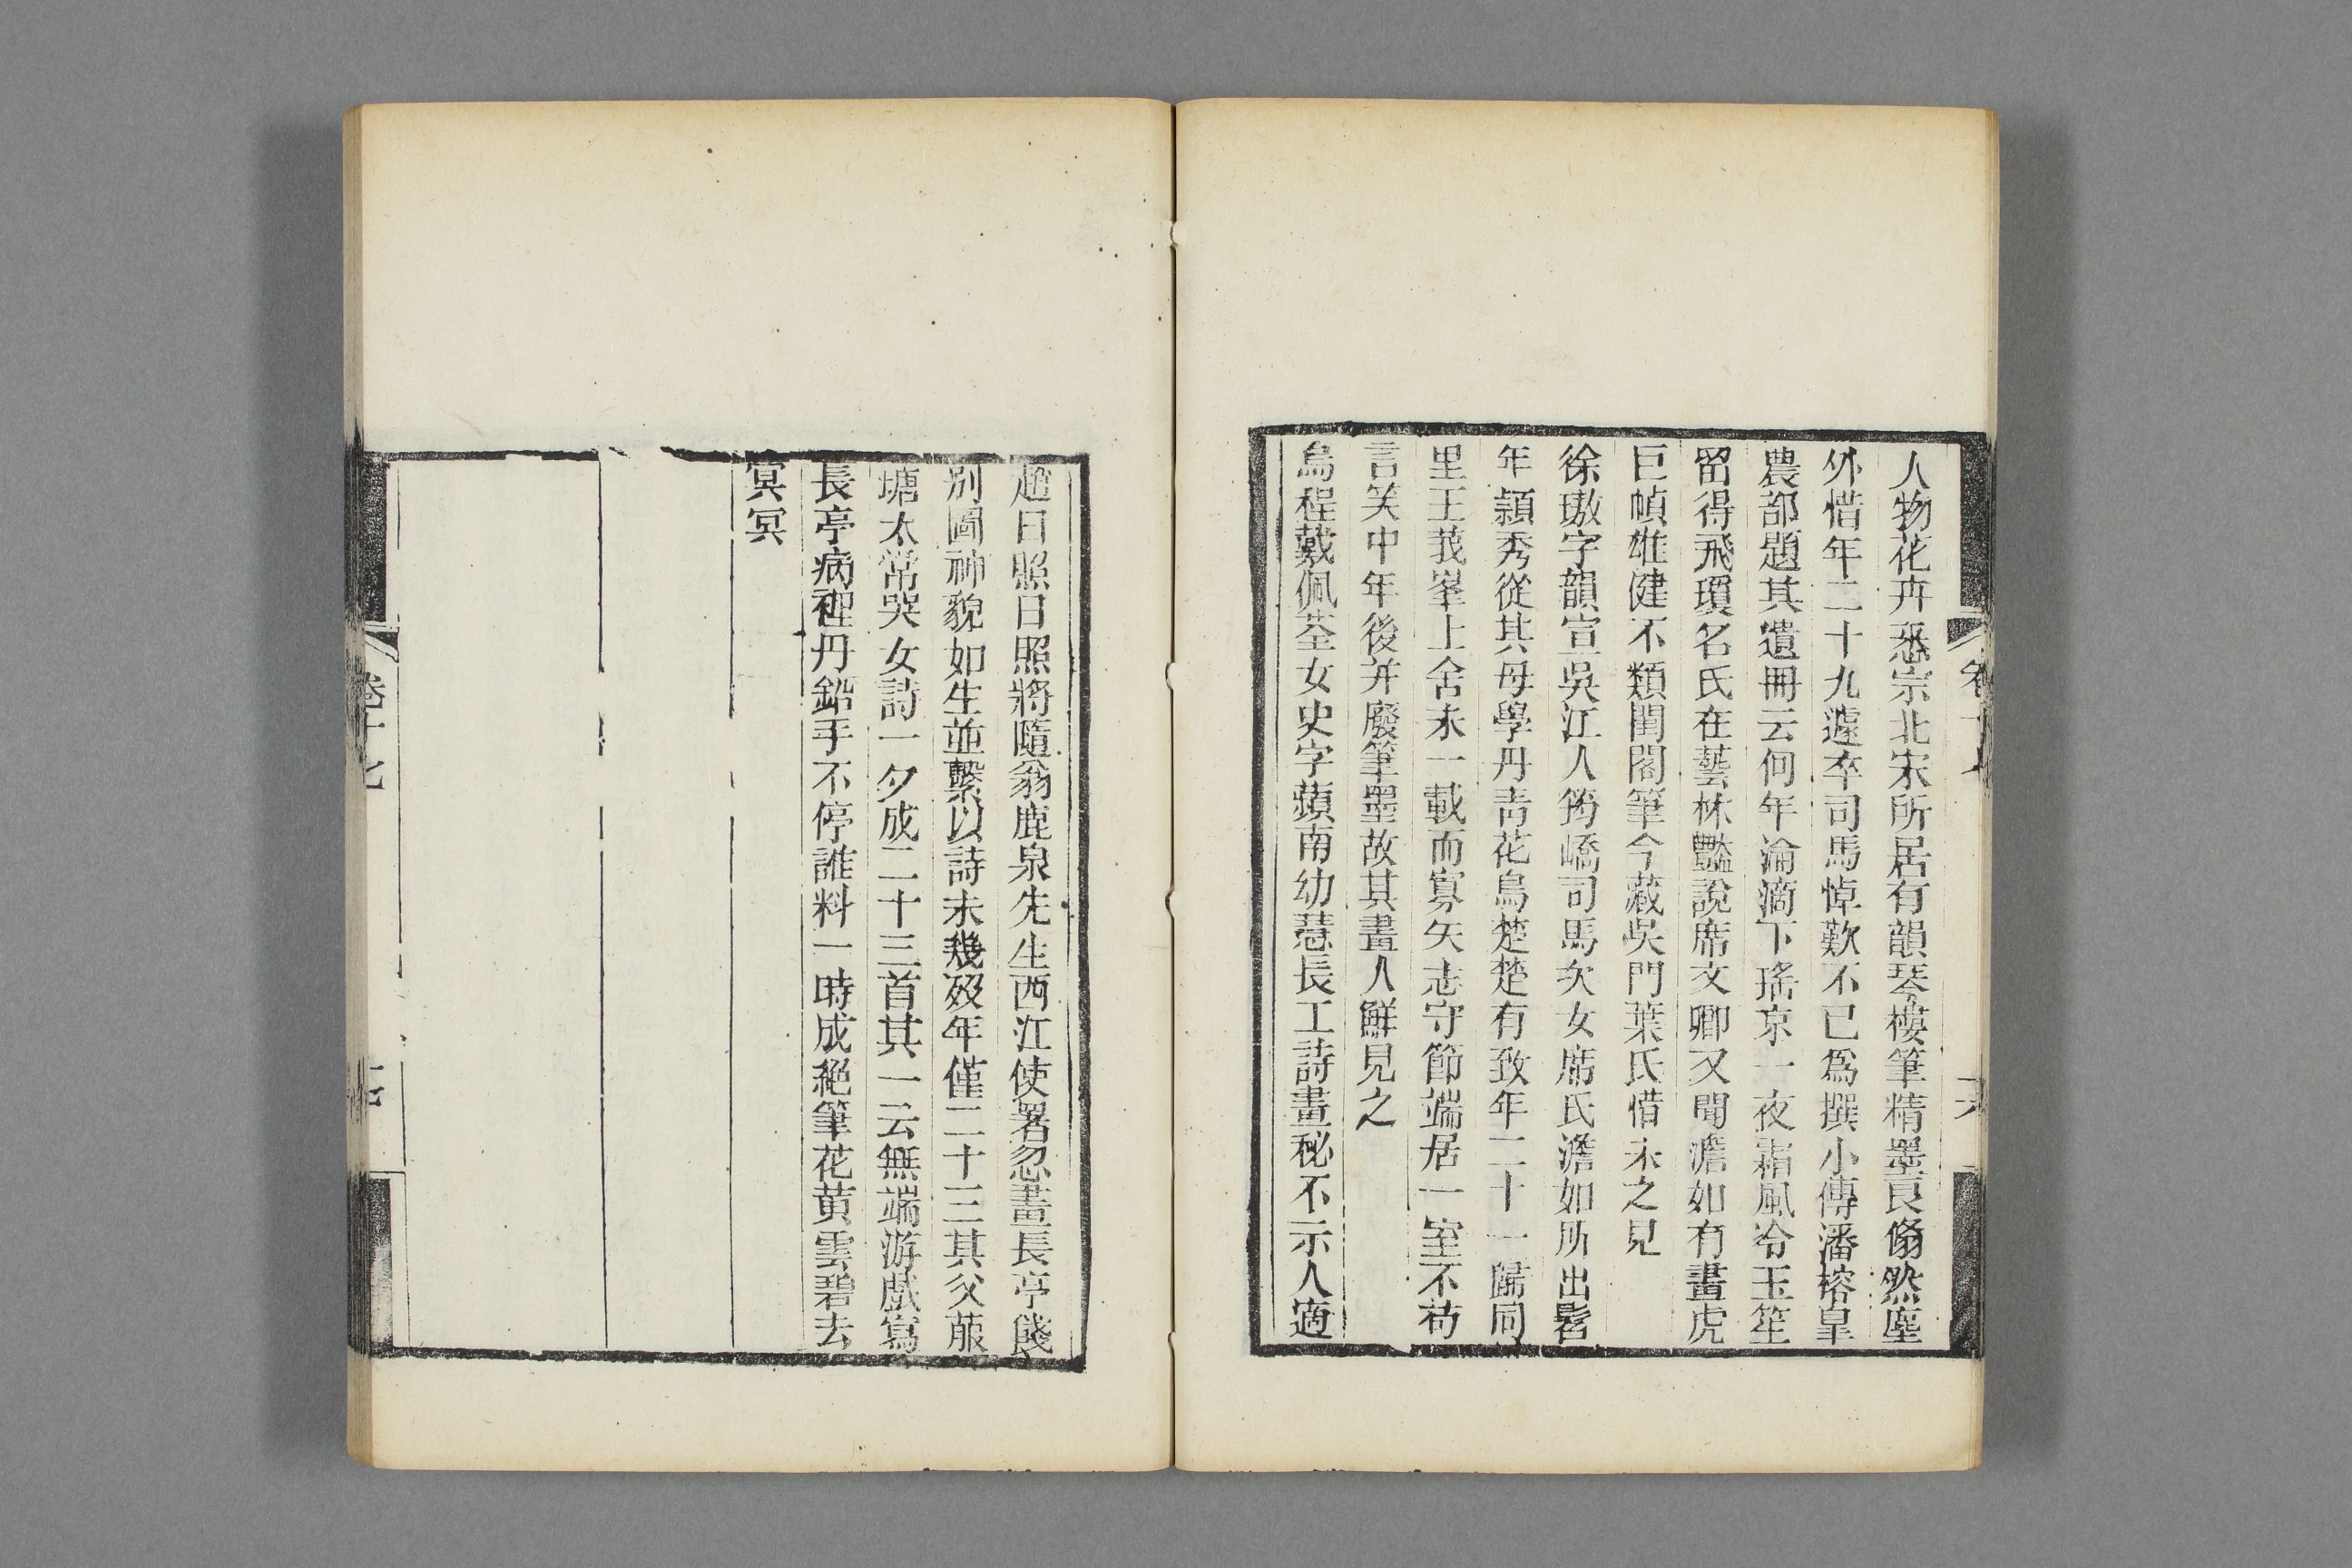 人物花卉悉宗北宋所居有韻琴樓筆精墨良翛然塵
外惜年二十九遽卒司馬悼歎不已爲撰小傳潘榕皋
農部題其遺冊云何年淪滴下瑤京一夜霜風冷玉笙
留得飛瓊名氏在藝林豔說席文卿又聞澹如有畫虎
巨幀雄健不類閨閣筆今藏吳門葉氏惜未之見
徐璈字韻宣吳江人筠嶠司馬次女席氏澹如所出髫
年穎秀從其母學丹靑花鳥楚楚有致年二十一歸同
里王莪峯上舍未一載而寡矢志守節端居一室不苟
言笑中年後并廢筆墨故其畫人鮮見之
烏程戴佩荃女史字蘋南幼慧長工詩畫秘不示人適
趙日照日照將隨翁鹿泉先生西江使署忽畫長亭餞
別圖神貌如生並繫以詩未幾歿年僅二十三其父菔
塘太常哭女詩一夕成二十三首其一云無端游戲寫
長亭病裡丹鉛手不停誰料一時成絕筆花黄雲碧去
冥冥
卷十七